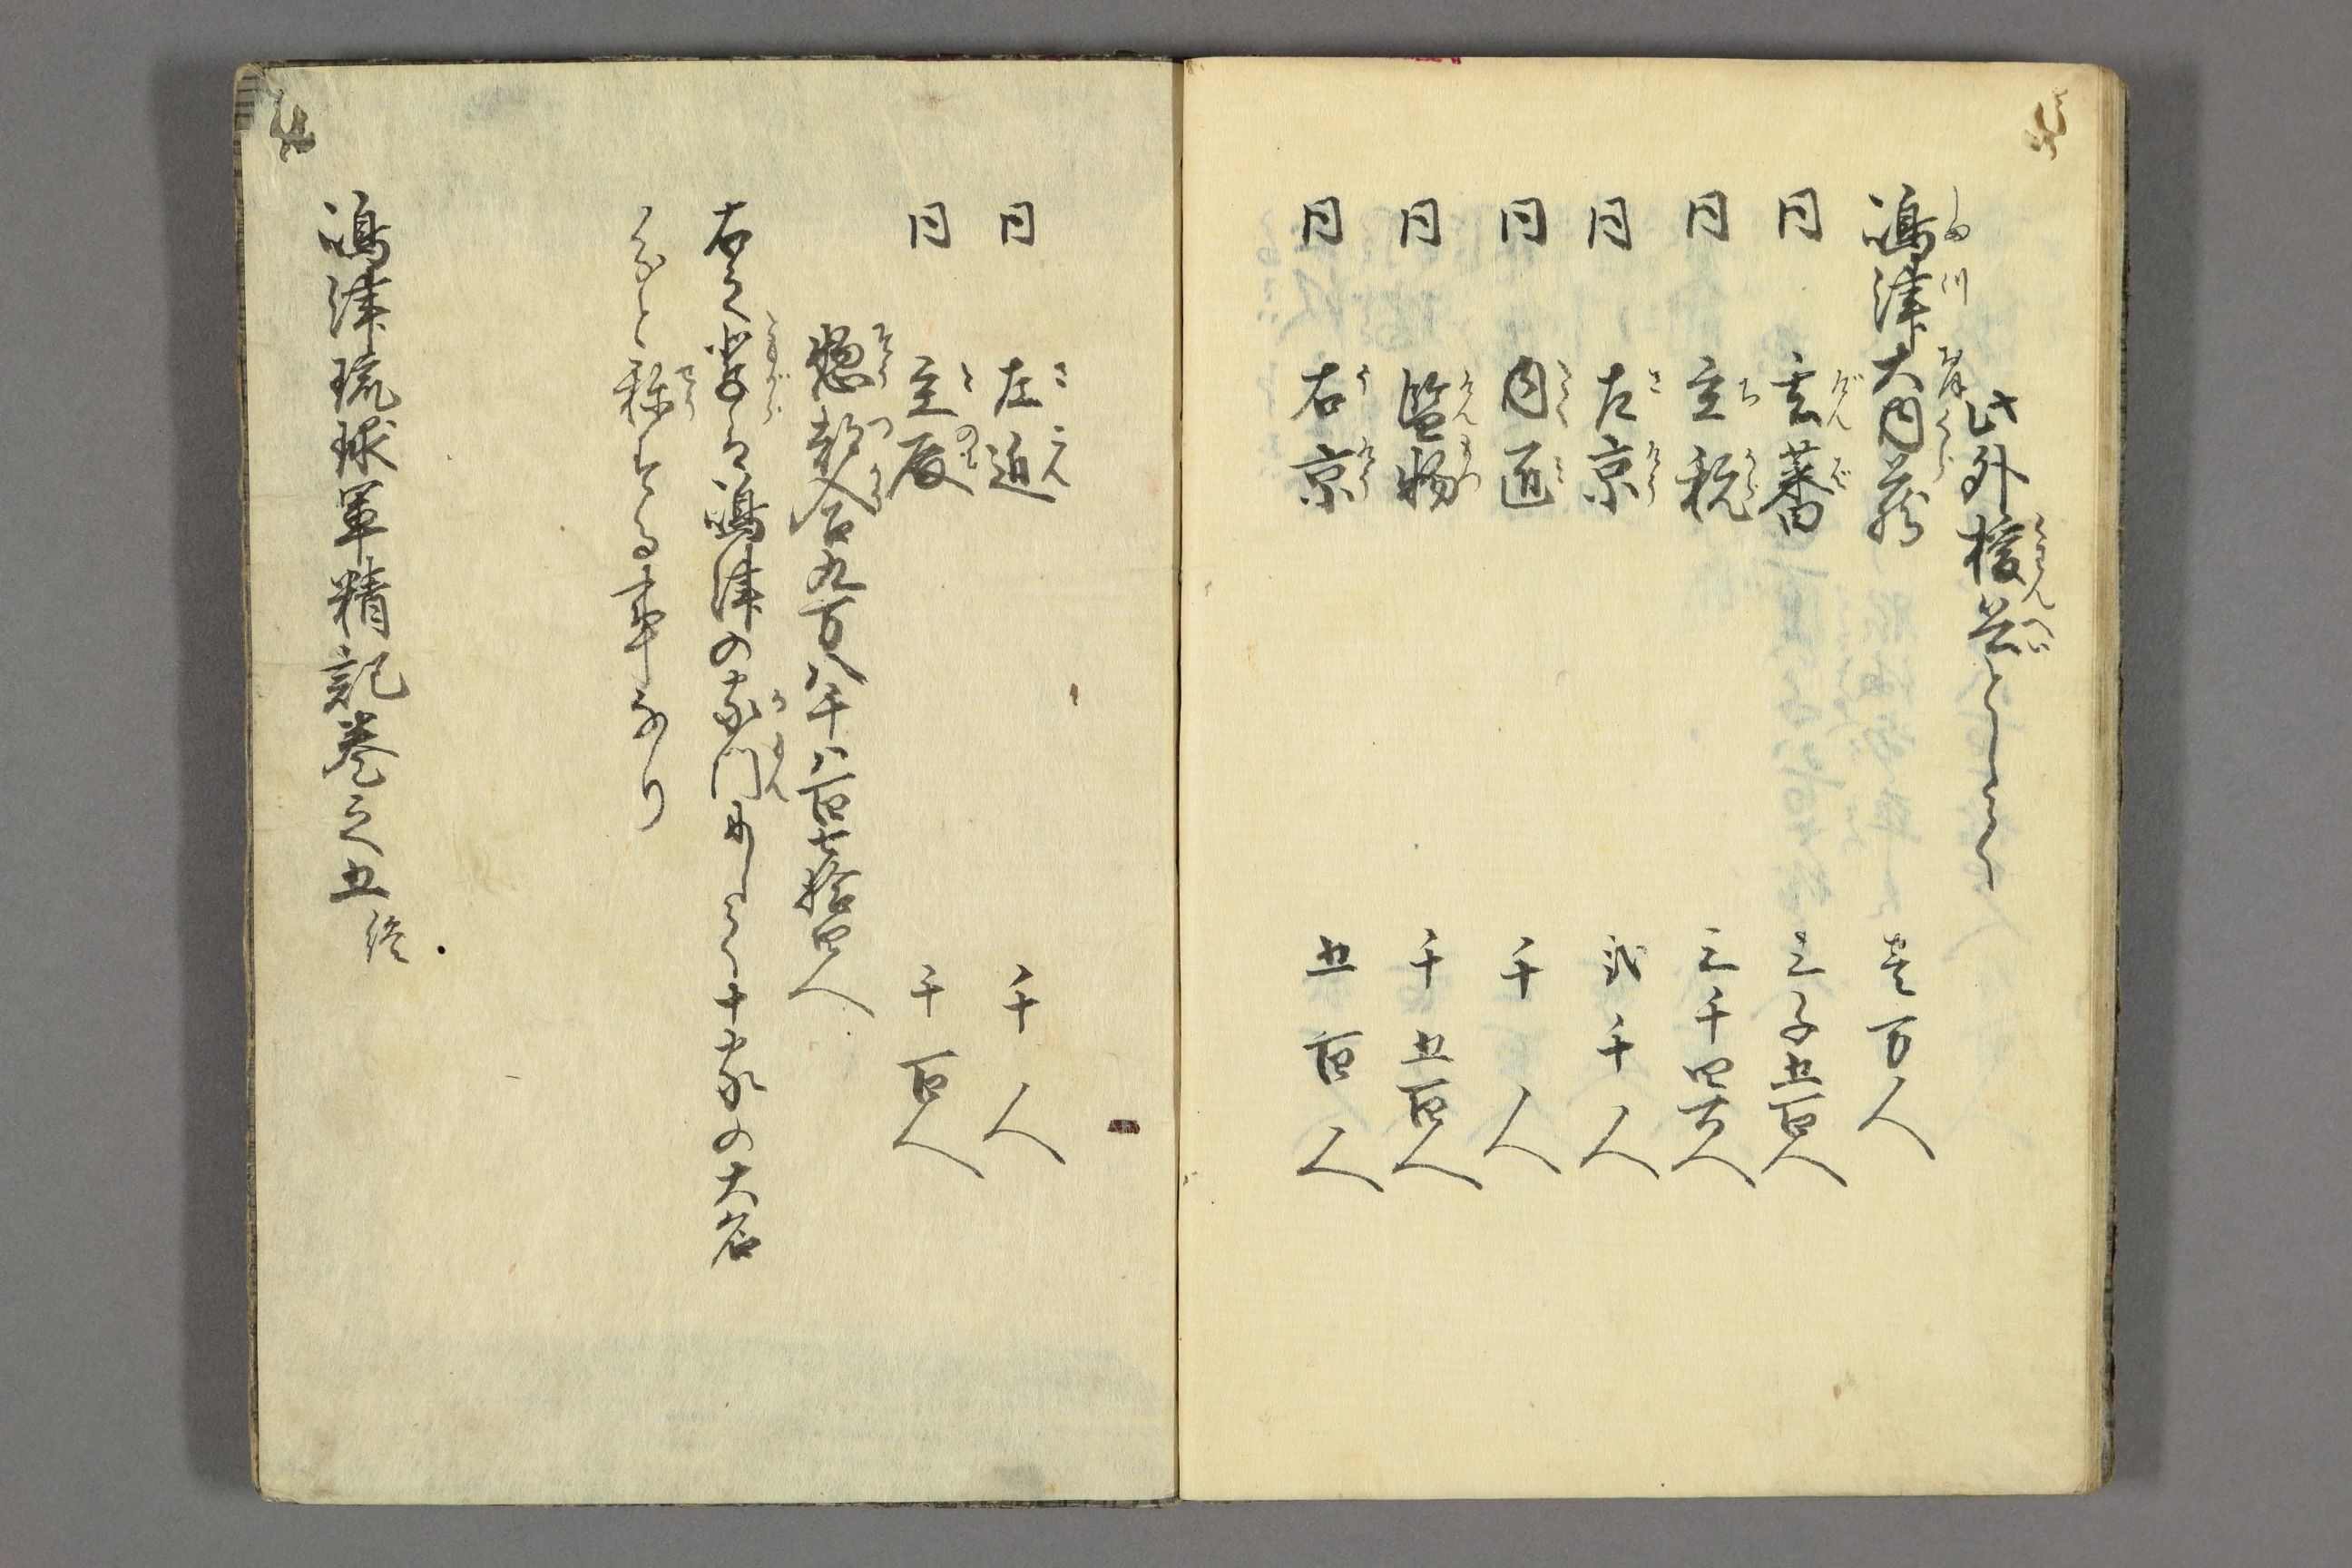 此外援兵として
嶋津大内蔵 壱万人
同 玄蕃 三千五百人
同 主税 三千四百人
同 左京 弐千人
同 内匠 千人
同 監物 千五百人
同 右京 五百人
同 左近 千人
同 主殿 千百人
惣勢合九万八千八百七拾四人
右之輩は嶋津の家門にして十家の大名
と称する事なり
嶋津琉球軍精記巻之五終